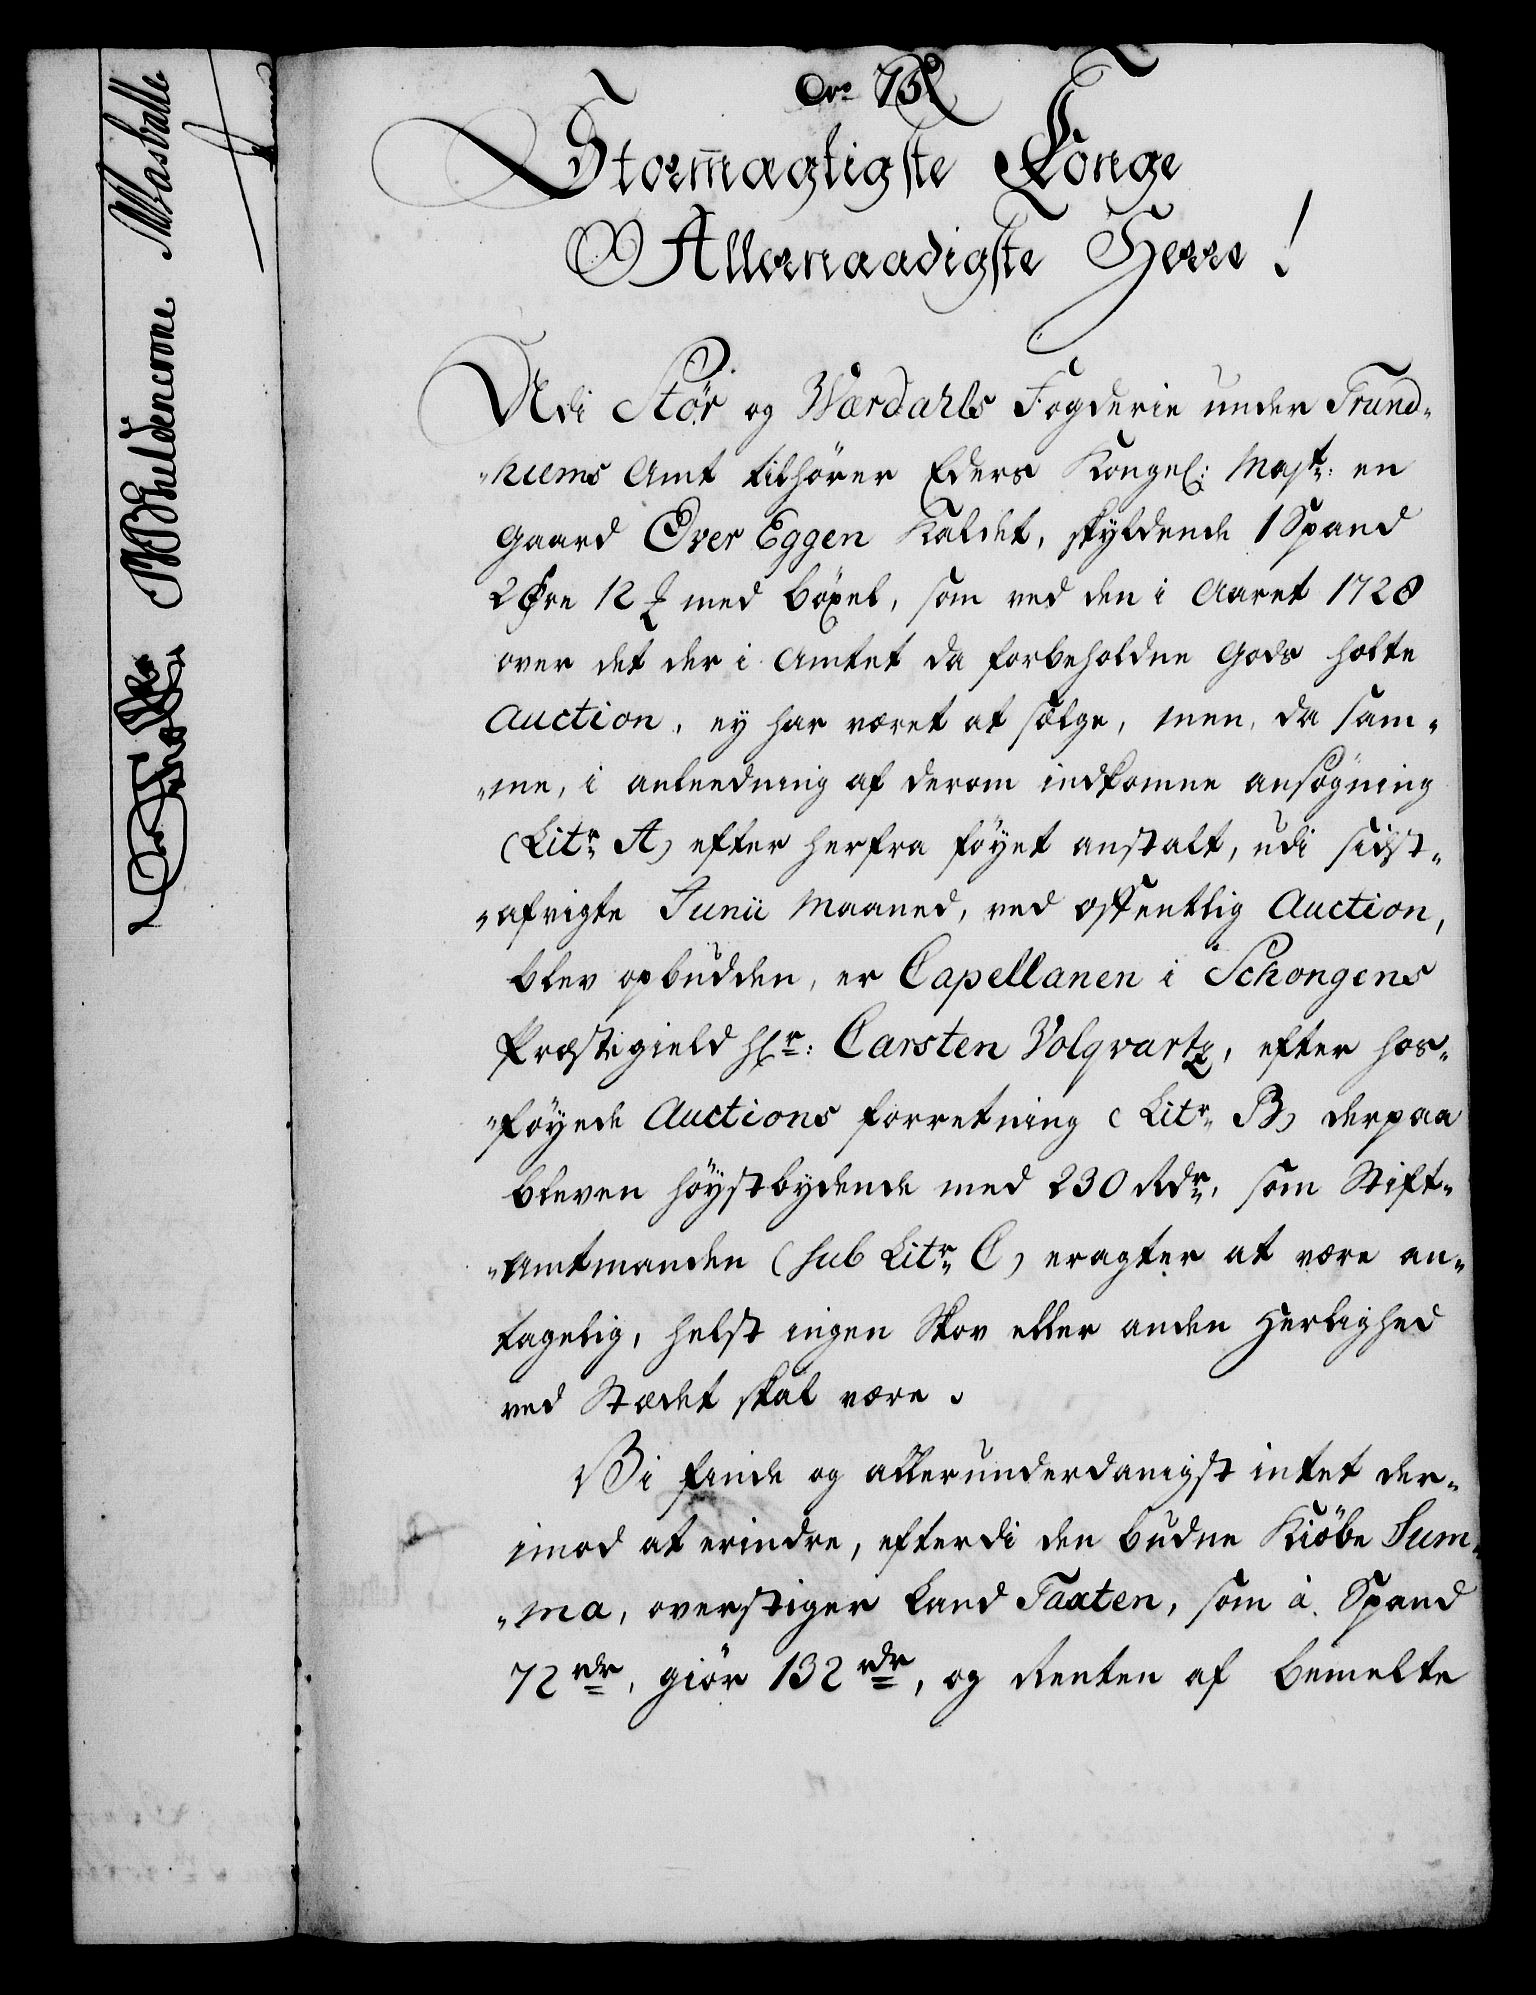 No 75
Stormægtigste Konge
Allernaadigste Herre!
Udi Stør og Wærdahls Fogderie under Trund-
-hiems Amt tilhører Eders Kongel: Mayt: en
Gaard Over Eggen kaldet, skyldende 1 Spand
2 Øre 12 ℔ med böxel, som ved den i Aaret 1728
over det der i Amtet da forbeholdne Gods holte
Auction, ey har været at sælge, men, da sam-
-me, i anleedning af derom indkomne ansøgning
(Litr A) efter herfra föyet anstalt, udi sidst-
-afvigte Junii Maaned, ved offentlig Auction,
blev opbudden, er Capellanen i Schongens
Præstegield Hr: Carsten Volqvartz, efter hos-
-föyede Auctions forretning (Litr B) derpaa
bleven höystbydende med 230 Rdr, som Stift-
-Amtmanden (sub Litr C) eragter at være an-
tagelig, helst ingen Skov eller anden Herlighed
ved Stædet skal være.
Vi finde og allerunderdanigst intet der-
imod at erindre, efterdi den budne Kiöbe Sum-
-ma, overstiger Land Taxten, som à Spand
72 rdr, giör 132 rdr, og Renten af bemelte